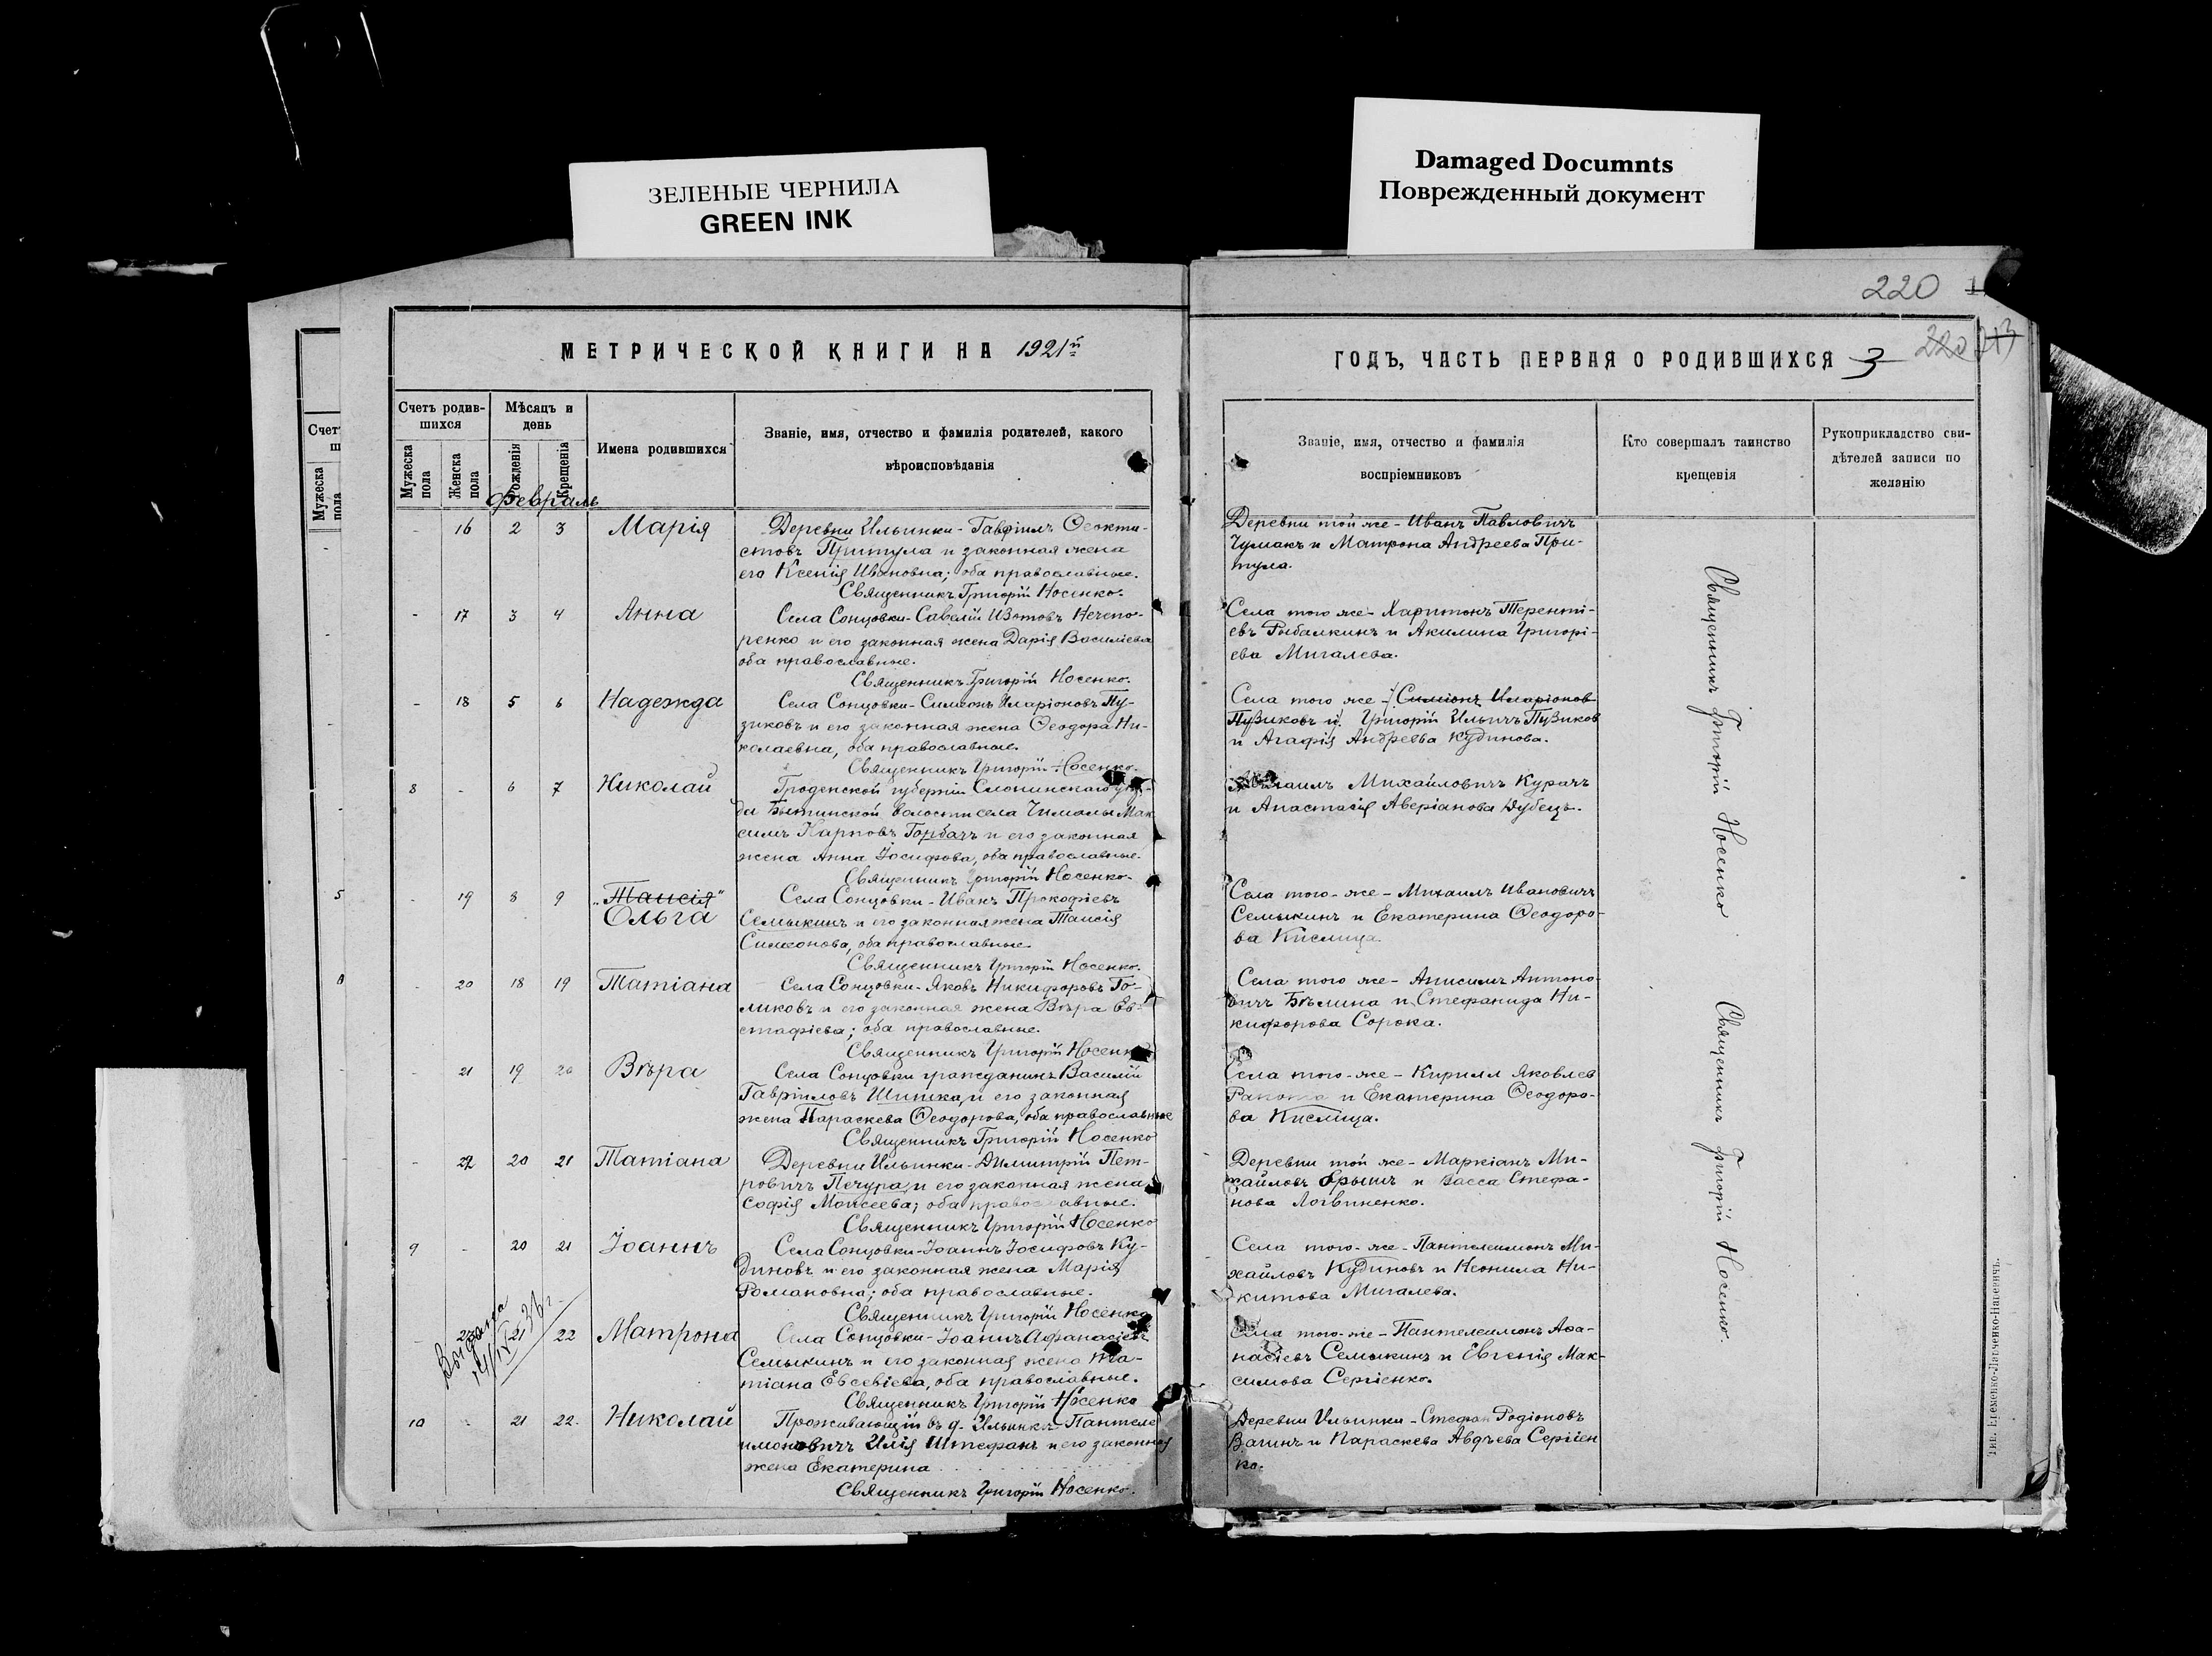 ЗЕЛЕНЫЕ ЧЕРНИЛА
GREEN INK
Damaged Documnts
Поврежденный документ
220
МЕТРИЧЕСКОЙ КНИГИ НА 1921й
Счетъ родив-
шихся
Мѣсяцъ и
день
Мужеска
пола
Женска
пола
Рожденія
Крещенія
Имена родившихся
Званіе, имя, отчество и фамилія родителей, какого
вѣроисповѣданія
февраль
- 16 2 3 Марія
Деревни Ильинки - Гавріилъ Ѳеокти-
стовъ Притула и законная жена
его Ксенія Ивановна; оба православные.
Священникъ Григорій Носенко.
- 17 3 4 Анна
Села Сонцовки - Савелій Изотовъ Нечепо-
ренко и его законная жена Дарія Василіева
оба православные.
Священникъ Григорій Носенко.
- 18 5 6 Надежда
Села Сонцовки - Симеонъ Иларіоновъ Пу-
зиковъ и его законная жена Ѳеодора Ни-
колаевна, оба православные.
Священникъ Григорій Носенко.
8 - 6 7 Николай
Гроденской губерніи Слонинскаго уѣз-
да Бытинской волости села Чемолы Мак
симъ Карповъ Горбачъ и его законная
жена Анна Іосифова, оба православные.
Священникъ Григорій Носенко.
- 19 8 9 „Таисія"
Ольга
Села Сонцовки - Иванъ Прокофіевъ
Семыкинъ и его законная жена Таисія
Симеонова, оба православные.
Священникъ Григорій Носенко.
- 20 18 19 Татіана
Села Сонцовки - Яковъ Никифоровъ Го-
ликовъ и его законная жена Вѣра Ев-
стафіева; оба православные.
Священникъ Григорій Носенко
- 21 19 20 Вѣра
Села Сонцовки гражданинъ Василій
Гавріиловъ Шишка, и его законная
жена Параскева Ѳеодорова, оба православные
Священникъ Григорій Носенко
- 22 20 21 Татіана
Деревни Ильинки - Димитрій Пет-
ровичъ Печура, и его законная жена
Софія Моисеева; оба православные.
Священникъ Григорій Носенко
9 - 20 21 Іоаннъ
Села Сонцовки - Іоаннъ Іосифовъ Ку-
диновъ и его законная жена Марія
Романовна; оба православные.
Священникъ Григорій Носенко
Выдана
- 21 22 Матрона
Села Сонцовки - Іоаннъ Афанасіевъ
Семыкинъ и его законная жена Та-
тіана Евсевіева, оба православные.
Священникъ Григорій Носенко
10 - 21 22. Николай
Проживающій въ д. Ильинкѣ - Пантеле
имоновичъ Илія Штефанъ и его законная
жена Екатерина
Священникъ Григорій Носенко.
ГОДЪ, ЧАСТЬ ПЕРВАЯ О РОДИВШИХСЯ 3
Званіе, имя, отчество и фамилія
воспріемниковъ
Кто совершалъ таинство
крещенія
Рукоприкладство сви-
дѣтелей записи по
желанію
Деревни той же - Иванъ Павловичъ
Чумакъ и Матрона Андреева При-
тула.
Села того же - Харитонъ Теренті-
евъ Рыбалкинъ и Акилина Григорі-
ева Мигалева.
Села того же - Симіонъ Иларіонов
Пузиковъ и Григорій Ильичъ Пузиков
и Агафія Андреева Кудинова.
Михаилъ Михайловичъ Курачъ
и Анастасія Аверіанова Дубецъ.
Села того - же - Михаилъ Ивановичъ
Семыкинъ и Екатерина Ѳеодоро-
ва Кислица.
Села того же - Анисимъ Антоно-
вичъ Бѣлина и Стефанида Ни-
кифорова Сорока.
Села того - же - Кирилл Яковлев
Ракота и Екатерина Ѳеодоро-
ва Кислица.
Деревни той же - Маркіанъ Ми-
хайловъ Ярышъ и Васса Стефа-
нова Логвиненко.
Села того - же - Пантелеимонъ Ми-
хайловъ Кудиновъ и Неонила Ни-
китова Мигалева.
Села того - же - Пантелеимонъ Аѳа-
насіевъ Семыкинъ и Евгенія Мак-
симова Сергіенко.
Деревни Ильинки - Стефан Родіоновъ
Вагинъ и Параскева Авдѣева Сергіен
ко.
Священникъ Григорій Носенко
Священникъ Григорій Носенко.
Счетъ
Мужеска
пола